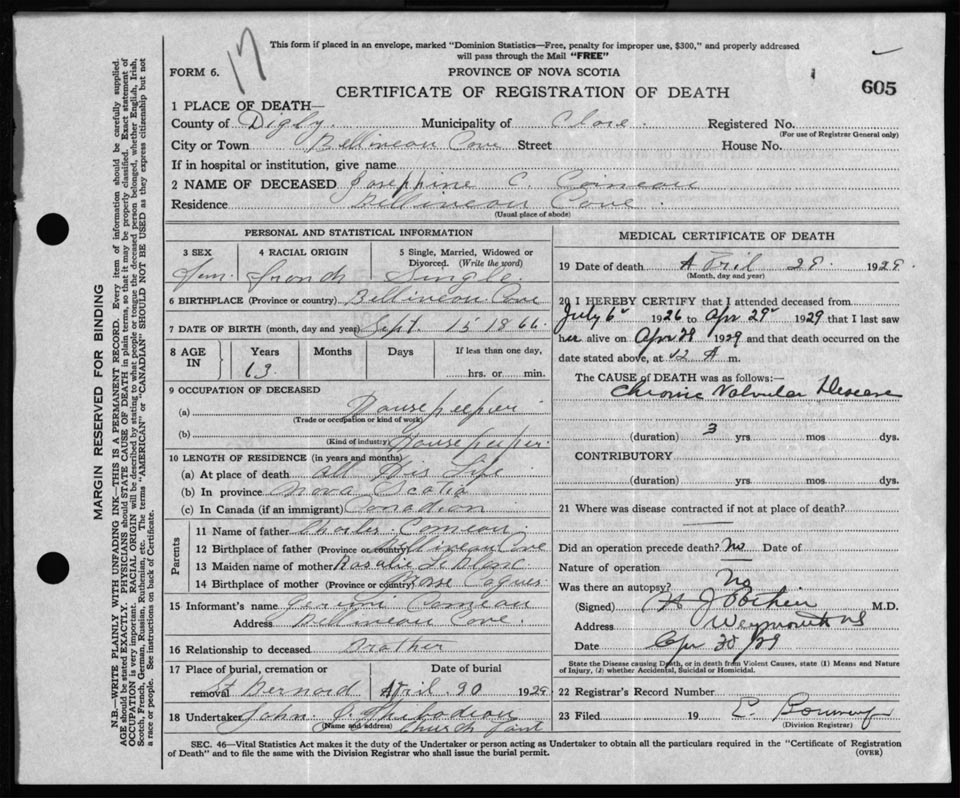 17
This form if placed in an envelope, marked "Dominion Statistics—Free, penalty for improper use, $300," and properly addressed
will pass through the Mail "FREE"
FORM 6.
PROVINCE OF NOVA SCOTIA
605
CERTIFICATE OF REGISTRATION OF DEATH
1 PLACE OF DEATH—
County of Digby Municipality of Clare Registered No.
(For use of Registrar General only)
City or Town Bellineau Cove Street House No.
If in hospital or institution, give name
2 NAME OF DECEASED Josephine C. Comeau
Residence Bellineau Cove
(Usual place of abode)
PERSONAL AND STATISTICAL INFORMATION
3 SEX 4 RACIAL ORIGIN 5 Single, Married, Widowed or
Divorced. (Write the word)
Fem. French Single
6 BIRTHPLACE (Province or country) Bellineau Cove
7 DATE OF BIRTH (month, day and year) Sept. 15 1866
8 AGE IN Years Months Days If less than one day,
63 hrs. or min.
9 OCCUPATION OF DECEASED
(a) Housekeeper
(Trade or occupation or kind of work)
(b) Housekeeper
(Kind of industry)
10 LENGTH OF RESIDENCE (in years and months)
(a) At place of death all this Life
(b) In province Nova Scotia
(c) In Canada (if an immigrant) Canadian
Parents
11 Name of father Charles Comeau
12 Birthplace of father (Province or country) Bellineau Cove
13 Maiden name of mother Rosalie LeBlanc
14 Birthplace of mother (Province or country) Coques
15 Informant's name Comeau
Address Bellineau Cove
16 Relationship to deceased Brother
17 Place of burial, cremation or Date of burial
removal St Bernard April 30 1929
18 Undertaker John Thibodeau
(Name and address) Church Point
MEDICAL CERTIFICATE OF DEATH
19 Date of death April 29 1929
(Month, day and year)
20 I HEREBY CERTIFY that I attended deceased from
July 6 1926 to Apr 29 1929 that I last saw
her alive on Apr 28 1929 and that death occurred on the
date stated above, at 12 A m.
The CAUSE of DEATH was as follows:—
Chronic Valvular Disease
(duration) 3 yrs. mos. dys.
CONTRIBUTORY
(duration) yrs. mos. dys.
21 Where was disease contracted if not at place of death?
Did an operation precede death? No Date of
Nature of operation
Was there an autopsy? No
(Signed) M.D.
Address Weymouth NS
Date Apr 30/29
State the Disease causing Death, or in death from Violent Causes, state (1) Means and Nature
of Injury, (2) whether Accidental, Suicidal or Homicidal.
22 Registrar's Record Number
23 Filed 19
(Division Registrar)
SEC. 46—Vital Statistics Act makes it the duty of the Undertaker or person acting as Undertaker to obtain all the particulars required in the "Certificate of Registration
of Death" and to file the same with the Division Registrar who shall issue the burial permit.
(OVER)
MARGIN RESERVED FOR BINDING
N.B.—WRITE PLAINLY WITH UNFADING INK—THIS IS A PERMANENT RECORD. Every item of information should be carefully supplied.
AGE should be stated EXACTLY. PHYSICIANS should STATE CAUSE OF DEATH in plain terms, so that it may be properly classified. Exact statement of
OCCUPATION is very important. RACIAL ORIGIN will be described by stating to what people or tongue the deceased person belonged, whether English, Irish,
Scotch, French, German, Russian, Ruthenian, etc. The terms "AMERICAN" or "CANADIAN" SHOULD NOT BE USED as they express citizenship but not
a race or people. See instructions on back of Certificate.